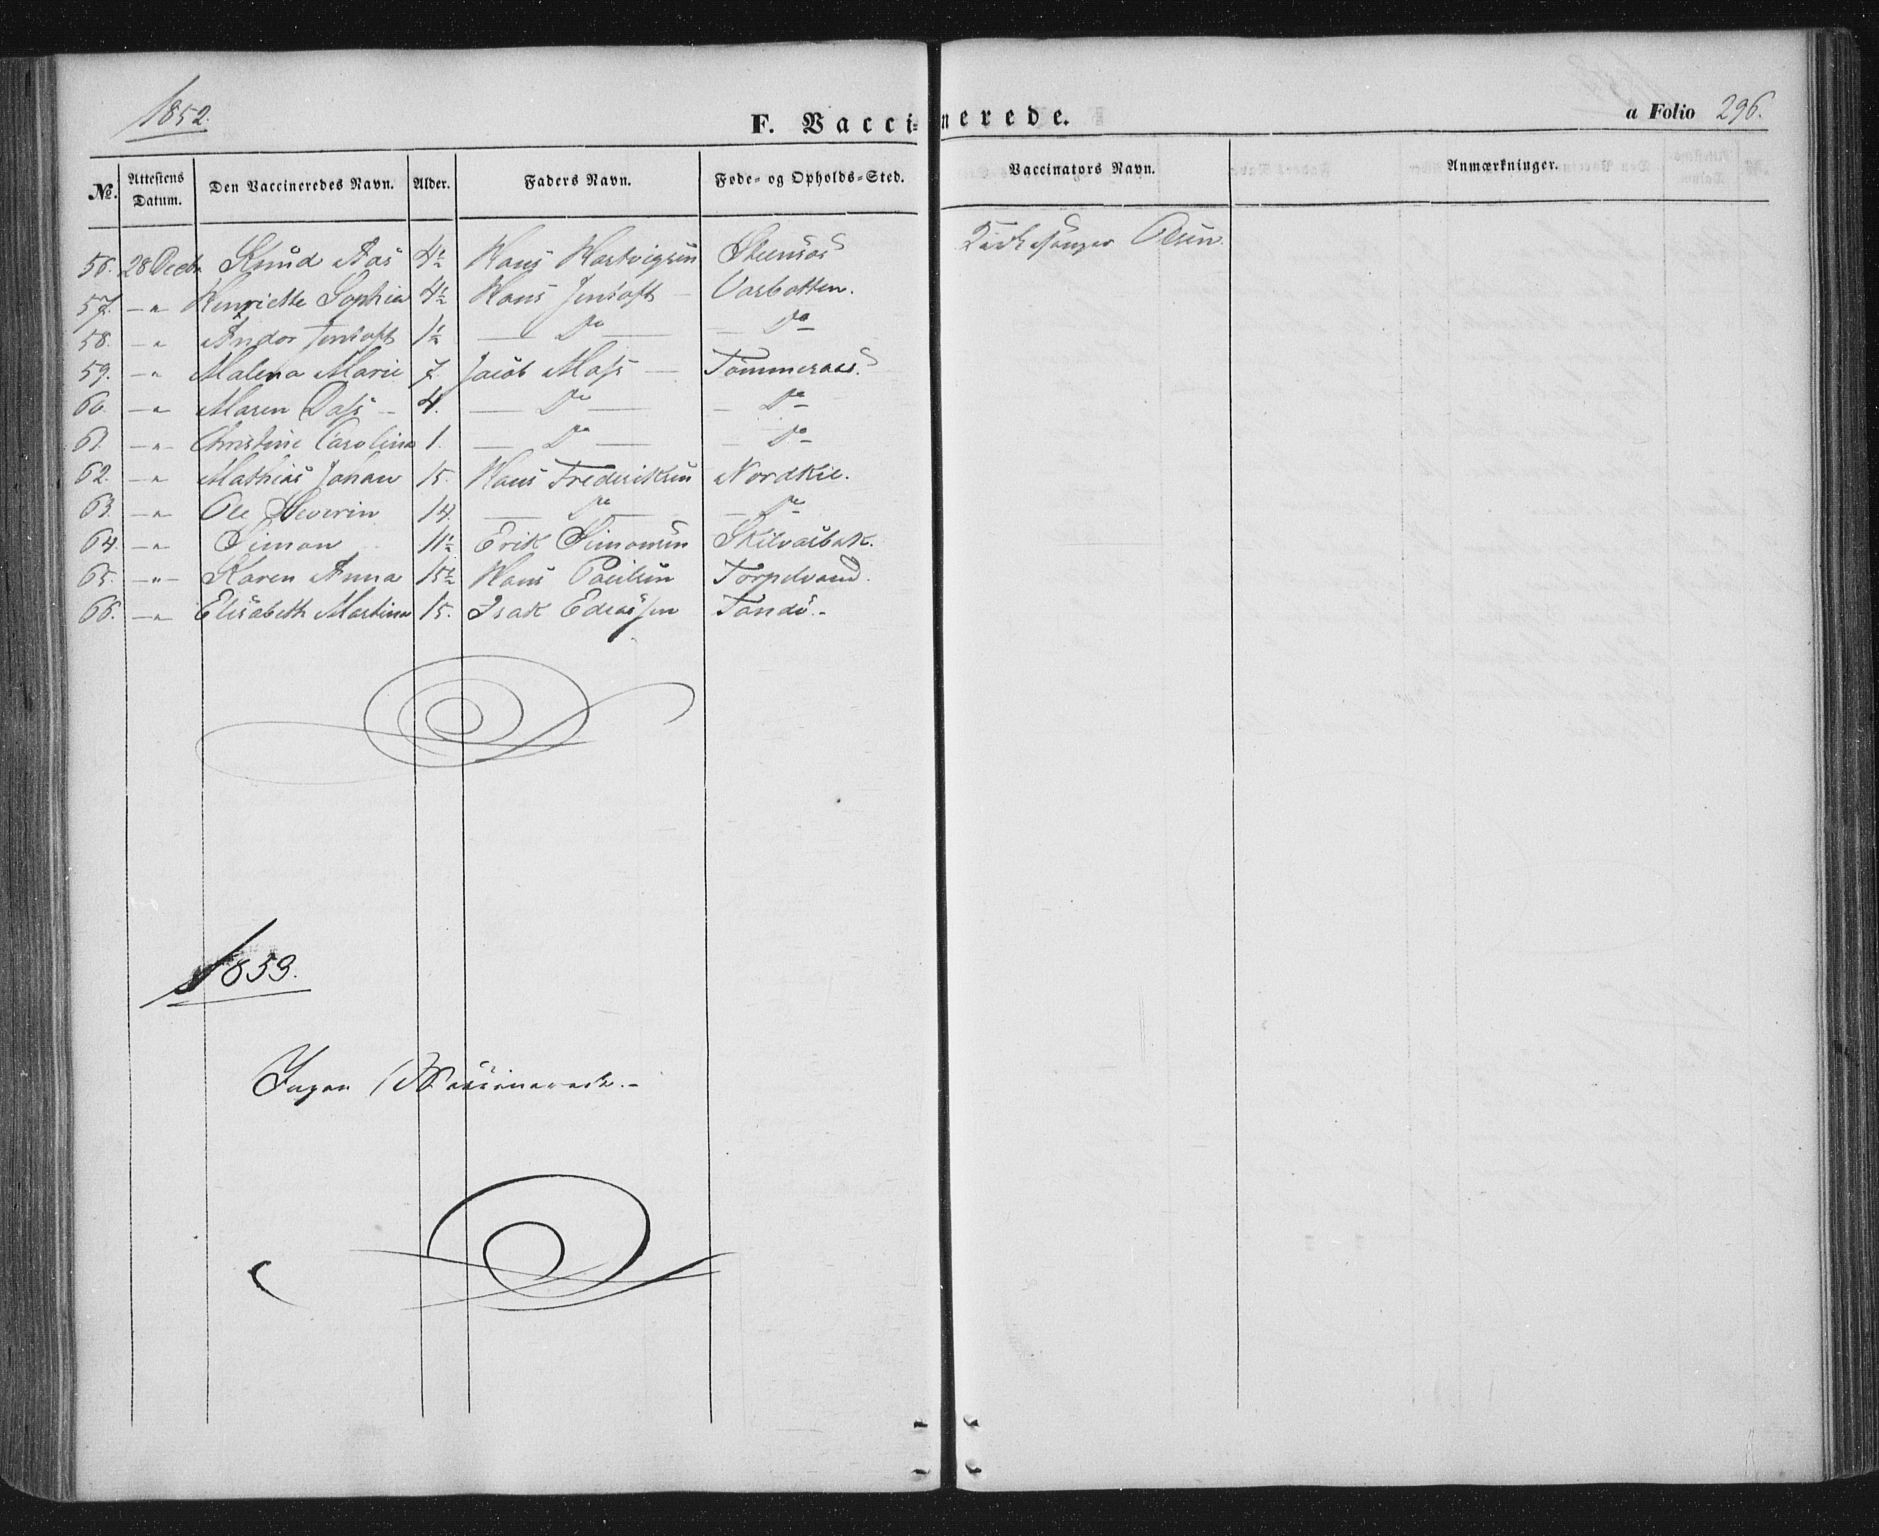 1852.
F. Vaccinerede.
a Folio 296.
№. Attestens Datum. Den Vaccineredes Navn. Alder. Faders Navn. Føde- og Opholds-Sted. Vaccinators Navn. Anmærkninger.
56. 28 Decbr Knud Aas 4½ Hans Hartvigsen Steensås Kirkesanger Olsen
57. —"— Henriette Sophia 4½ Hans Jentoft — Vasbotten.
58. —"— Andor Jentoft 1½ — Do — — Do —
59. —"— Malena Marie 7. Jacob Mass — Tømmeraas.
60. —"— Maren Dass — 4. — Do — — Do —
61. —"— Christine Carolina 1. — Do — — Do —
62. —"— Mathias Johan 15. Hans Frederiksen Nordkil.
63. —"— Ole Severin 14. — Do — — Do —
64. —"— Simon 11½ Erik Simonsen Skilvasbak.
65. —"— Karen Anna 15½ Hans Paulsen Torpelvand.
66. —"— Elisabeth Martina 15. Isak Edeassen Tandø.
1853.
Ingen Vaccinerede.